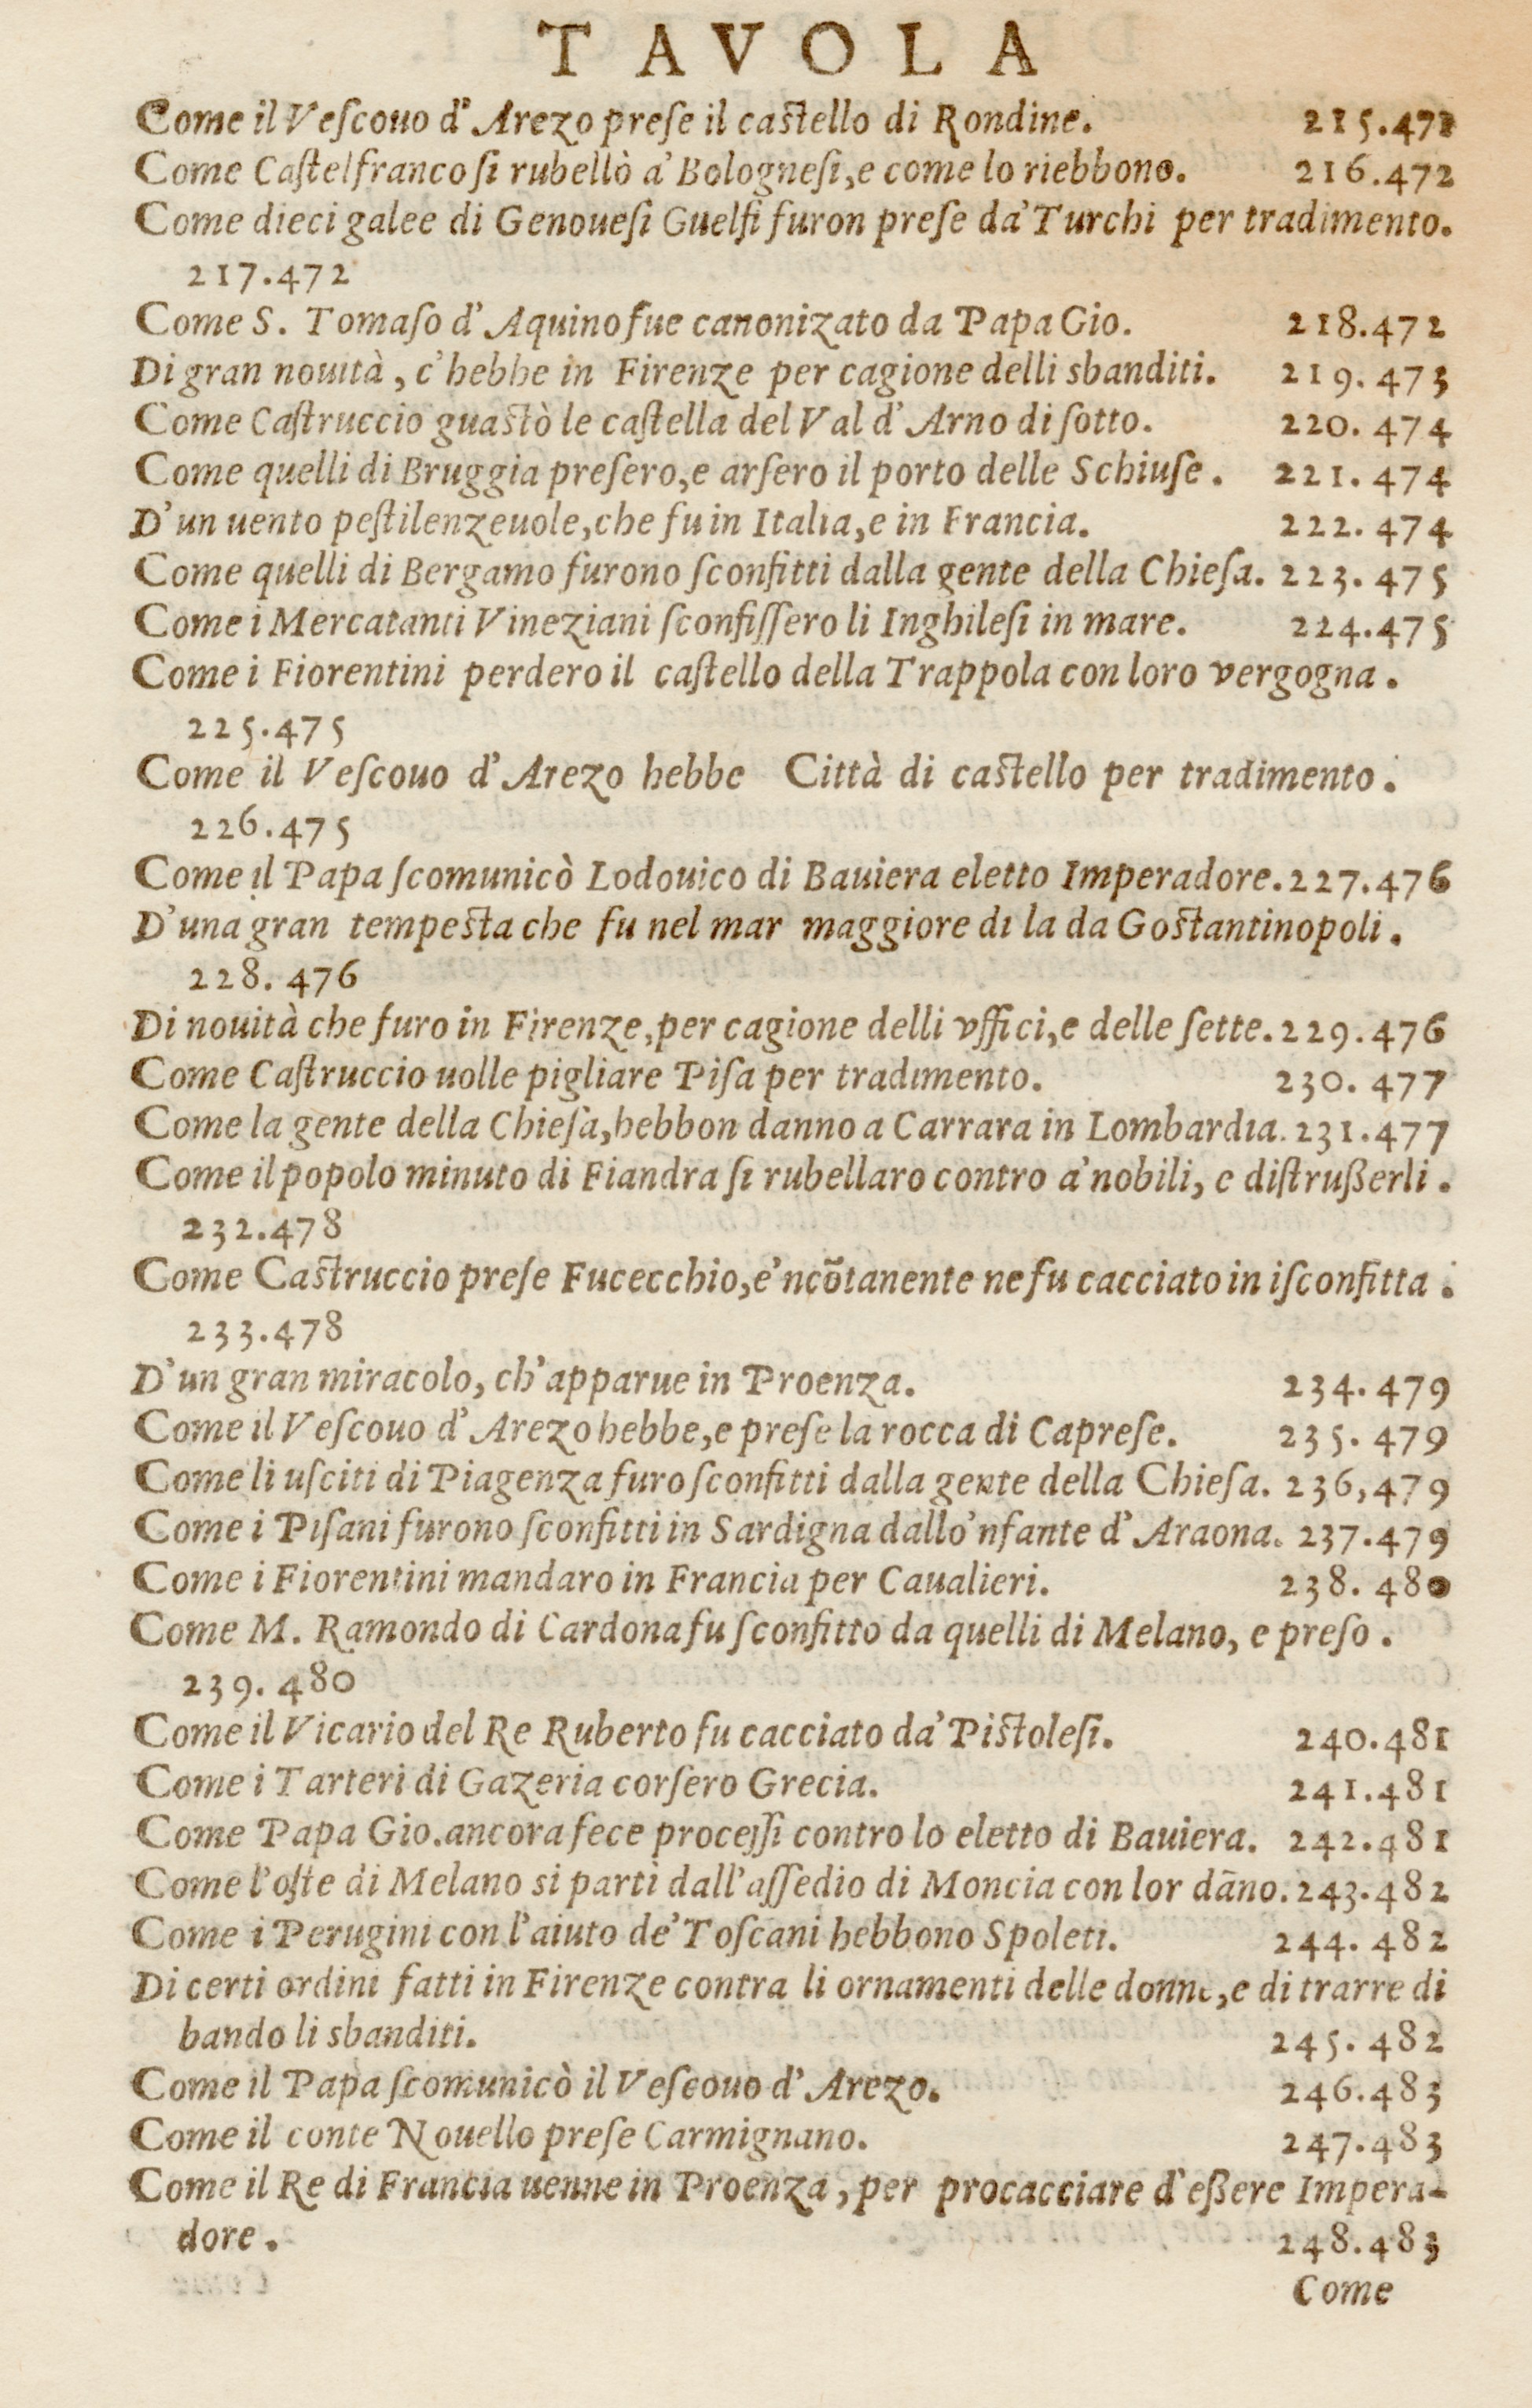 TAVOLA
Come il Veſcouo d'Arezo preſe il caſtello di Rondine. 215.472
Come Caſtelfranco ſi rubellò a' Bologneſi, e come lo riebbono. 216.472
Come dieci galee di Genoueſi Guelfi furon preſe da' Turchi per tradimento.
217.472
Come S. Tomaſo d'Aquino fue canonizato da Papa Gio. 218.472
Di gran nouità, c'hebbe in Firenze per cagione delli sbanditi. 219. 473
Come Caſtruccio guaſtò le caſtella del Val d'Arno di ſotto. 220. 474
Come quelli di Bruggia preſero, e arſero il porto delle Schiuſe. 221. 474
D'un uento peſtilenzeuole, che fu in Italia, e in Francia. 222. 474
Come quelli di Bergamo furono ſconfitti dalla gente della Chieſa. 223. 475
Come i Mercatanti Vineziani ſconfiſſero li Inghileſi in mare. 224.475
Come i Fiorentini perdero il caſtello della Trappola con loro vergogna.
225.475
Come il Veſcouo d'Arezo hebbe Città di caſtello per tradimento.
226.475
Come il Papa ſcomunicò Lodouico di Bauiera eletto Imperadore. 227.476
D'una gran tempeſta che fu nel mar maggiore di la da Goſtantinopoli.
228. 476
Di nouità che furo in Firenze, per cagione delli vffici, e delle ſette. 229.476
Come Caſtruccio uolle pigliare Piſa per tradimento. 230. 477
Come la gente della Chieſa, hebbon danno a Carrara in Lombardia. 231.477
Come il popolo minuto di Fiandra ſi rubellaro contro a' nobili, e diſtrußerli.
232.478
Come Caſtruccio preſe Fucecchio, e'ncõtanente ne fu cacciato in iſconfitta.
233.478
D'un gran miracolo, ch'apparue in Proenza. 234. 479
Come il Veſcouo d'Arezo hebbe, e preſe la rocca di Capreſe. 235. 479
Come li uſciti di Piagenza furo ſconfitti dalla gente della Chieſa. 236,479
Come i Piſani furono ſconfitti in Sardigna dallo'nfante d'Araona. 237.479
Come i Fiorentini mandaro in Francia per Caualieri. 238. 480
Come M. Ramondo di Cardona fu ſconfitto da quelli di Melano, e preſo.
239. 480
Come il Vicario del Re Ruberto fu cacciato da' Piſtoleſi. 240.481
Come i Tarteri di Gazeria corſero Grecia. 241.481
Come Papa Gio. ancora fece proceſſi contro lo eletto di Bauiera. 242.481
Come l'oſte di Melano si partì dall'aſſedio di Moncia con lor dãno. 243.482
Come i Perugini con l'aiuto de' Toſcani hebbono Spoleti. 244. 482
Di certi ordini fatti in Firenze contra li ornamenti delle donne, e di trarre di
bando li sbanditi. 245. 482
Come il Papa ſcomunicò il Veſcouo d'Arezo. 246.483
Come il conte Nouello preſe Carmignano. 247.483
Come il Re di Francia uenne in Proenza, per procacciare d'eßere Impera-
dore. 248.483
Come